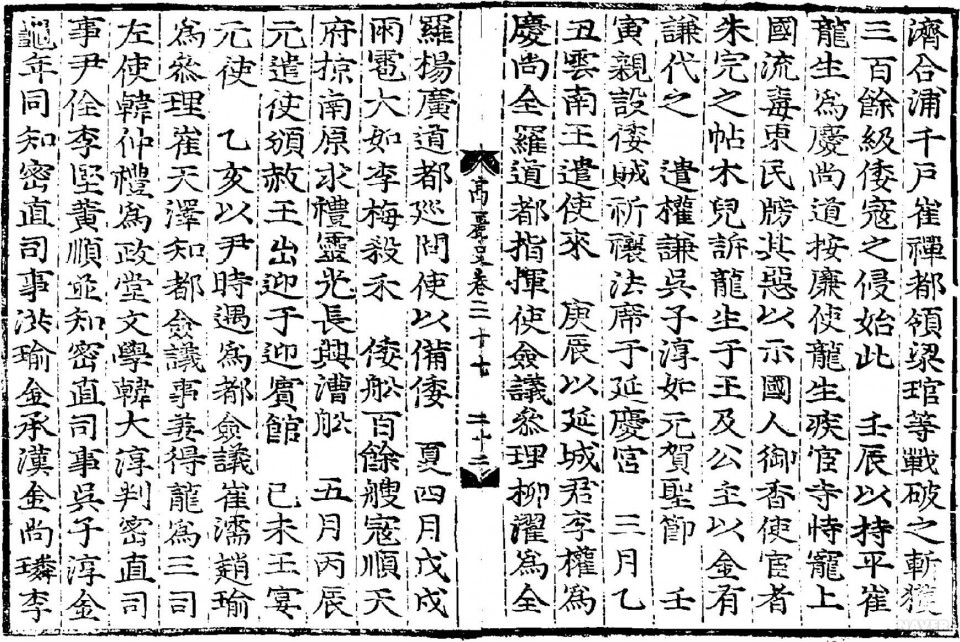 濟合浦千戶崔禪都領梁琯等戰破之斬獲
三百餘級倭寇之侵始此　壬辰以持平崔
龍生爲慶尚道按廉使龍生疾宦寺恃寵上
國流毒東民牓其惡以示國人御香使宦者
朱完之帖木兒訴龍生于王及公主以金有
謙代之　遣權謙吳子淳如元賀聖節　壬
寅親設倭賊祈禳法席于延慶宮　三月乙
丑雲南王遣使來　庚辰以延城君李權爲
慶尚全羅道都指揮使僉議叅理柳濯爲全
高麗史卷三十七　二十二
羅楊廣道都巡問使以備倭　夏四月戊戌
雨雹大如李梅殺禾　倭舩百餘艘寇順天
府掠南原求禮靈光長興漕舩　五月丙辰
元遣使頒赦王出迎于迎賓館　己未王宴
元使　乙亥以尹時遇爲都僉議崔濡趙瑜
爲叅理崔天澤知都僉議事姜得龍爲三司
左使韓仲禮爲政堂文學韓大淳判密直司
事尹佺李堅黃順並知密直司事吳子淳金
龜年同知密直司事洪瑜金承漢金尚璘李
NAVER